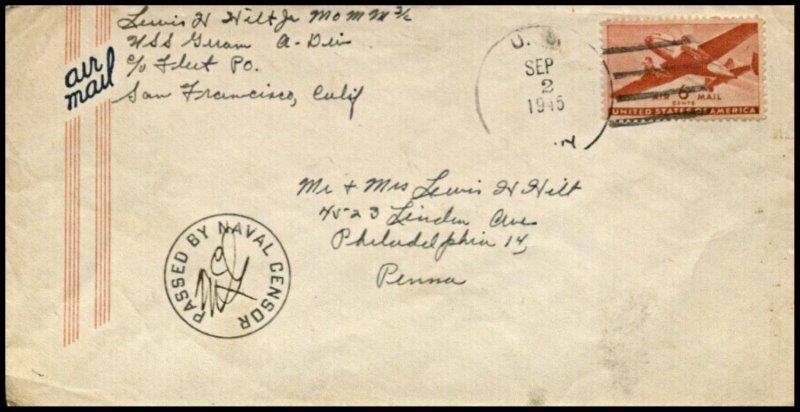 Lewis H Hilt Jr MoMM 3/c
USS A-Div
c/o Fleet PO.
San Francisco, Calif
air
mail
U. S.
SEP
2
1945
AIR 6 MAIL
CENTS
UNITED STATES OF AMERICA
Mr + Mrs Lewis H Hilt
4523 Linden Ave
Philadelphia 14,
Penna
PASSED BY NAVAL CENSOR